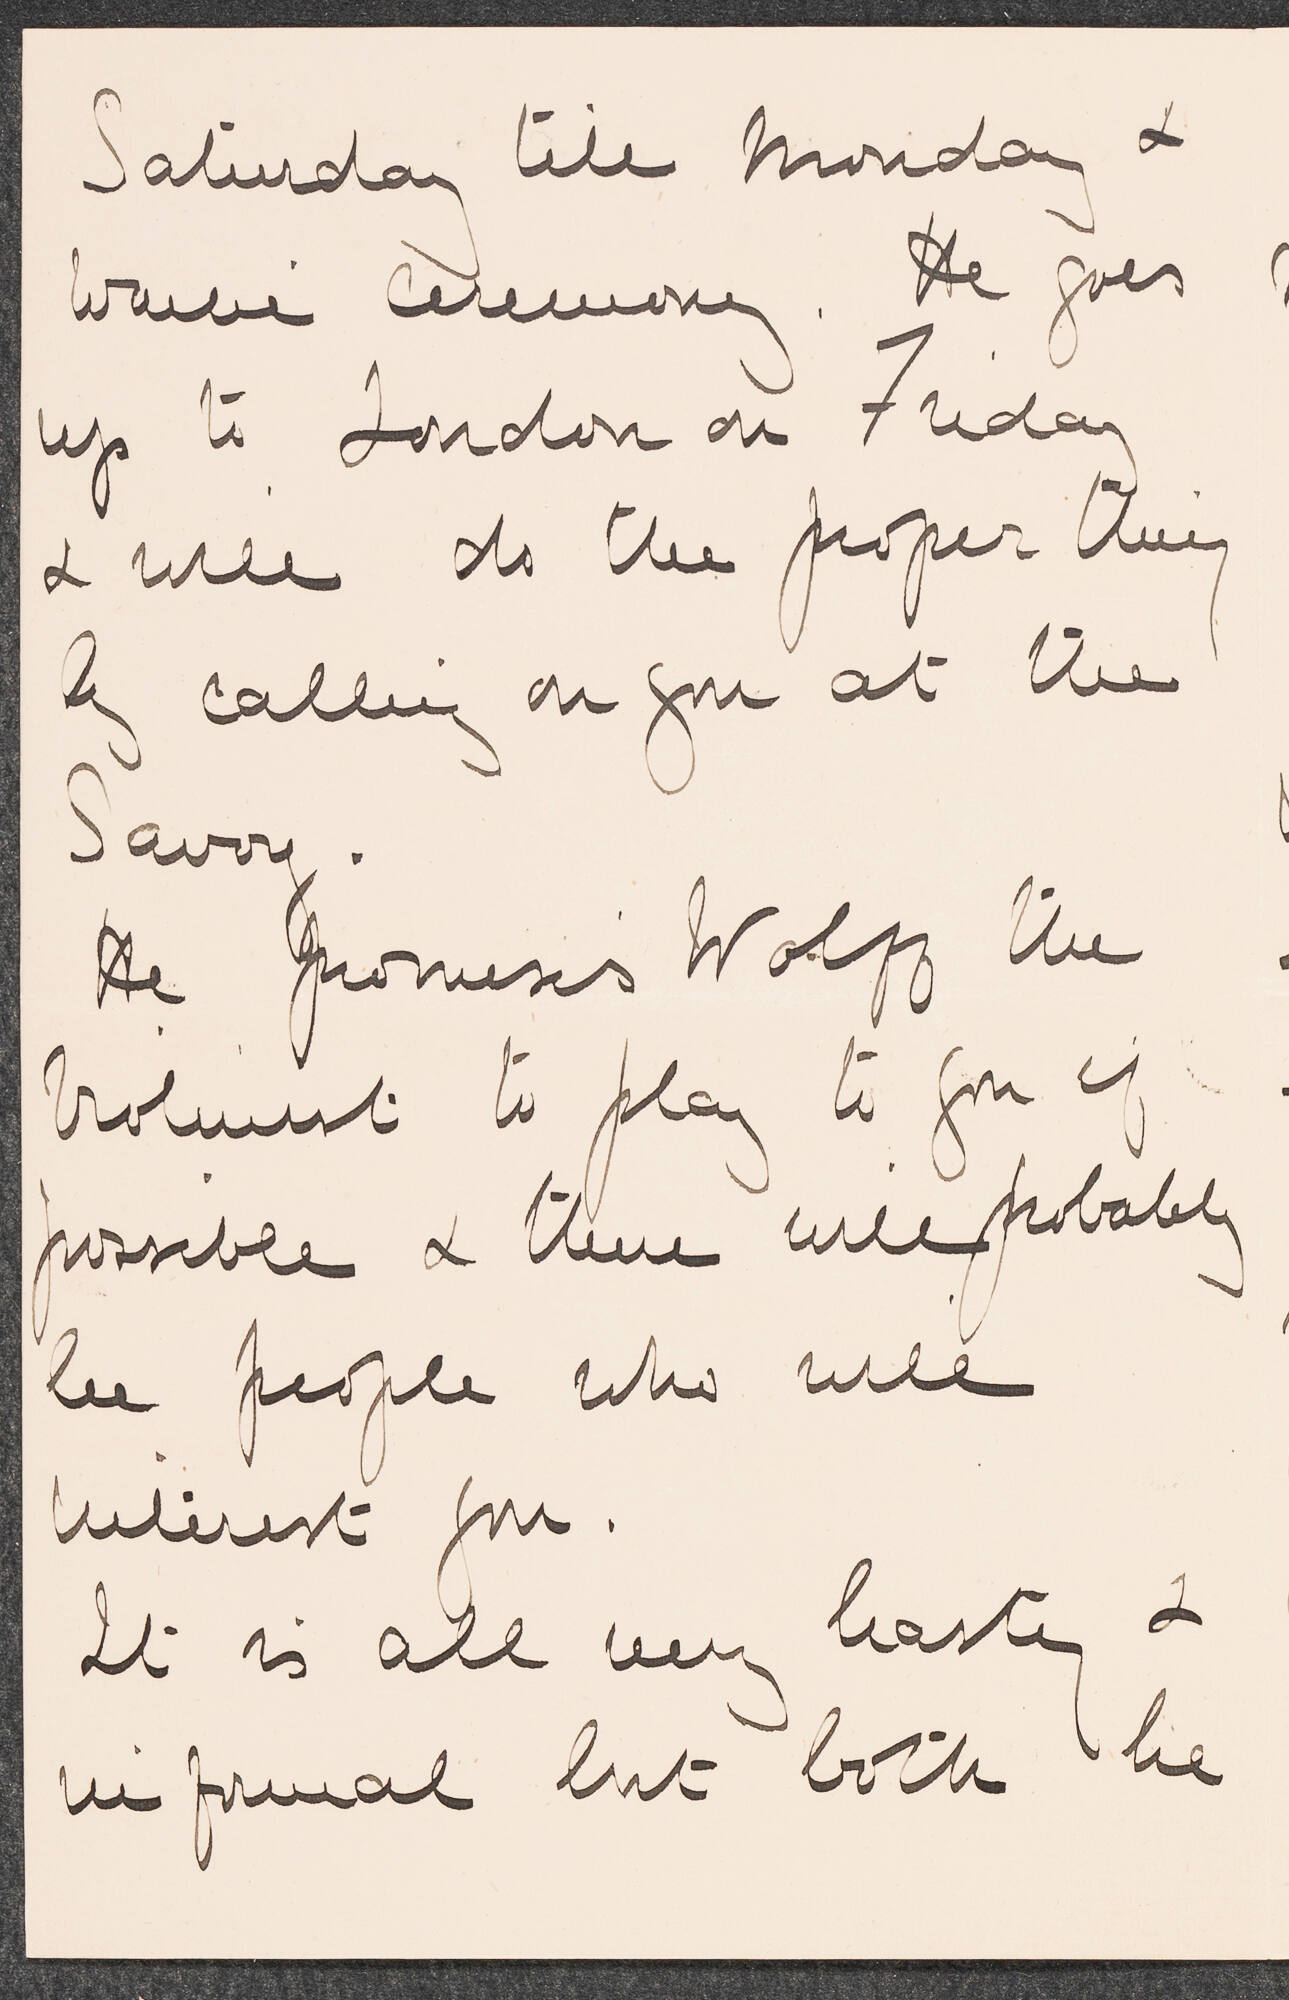 Saturday till Monday &
waive ceremony. He goes
up to London on Friday
& will do the proper thing
by calling on you at the
Savoy.
He promises Wolff the
Violinist to play to you if
possible & there will probably
be people who will
interest you.
It is all very hasty &
informal but both he